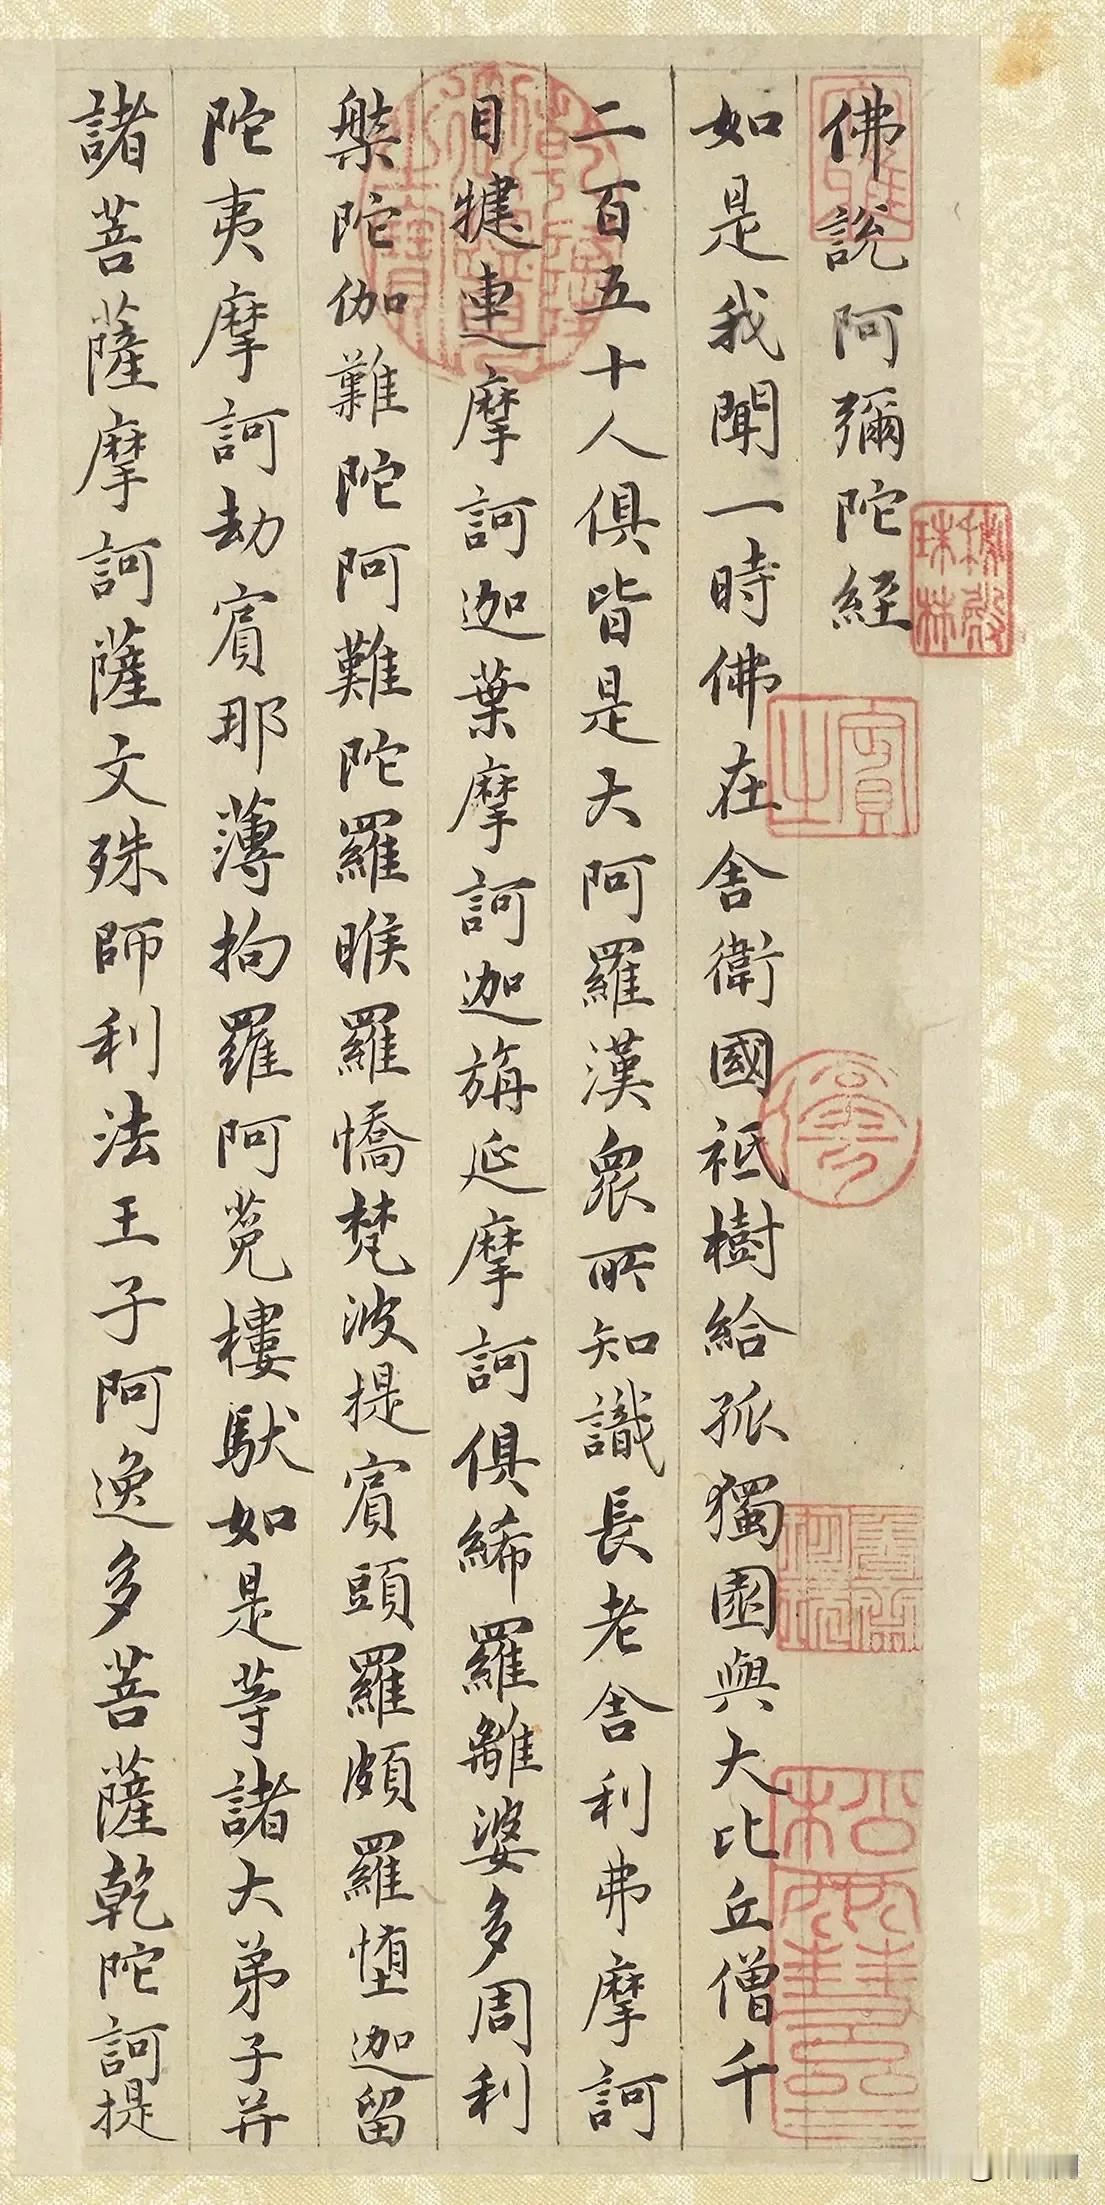 佛說阿彌陀經
如是我聞一時佛在舍衛國祇樹給孤獨園與大比丘僧千
二百五十人俱皆是大阿羅漢衆所知識長老舍利弗摩訶
目犍連摩訶迦葉摩訶迦旃延摩訶俱絺羅離婆多周利
槃陀伽難陀阿難陀羅睺羅憍梵波提賓頭羅頗羅墮迦留
陀夷摩訶劫賓那薄拘羅阿㝹樓馱如是等諸大弟子并
諸菩薩摩訶薩文殊師利法王子阿逸多菩薩乾陀訶提
秘殿珠林
乾隆御覽之寶
松雪齋